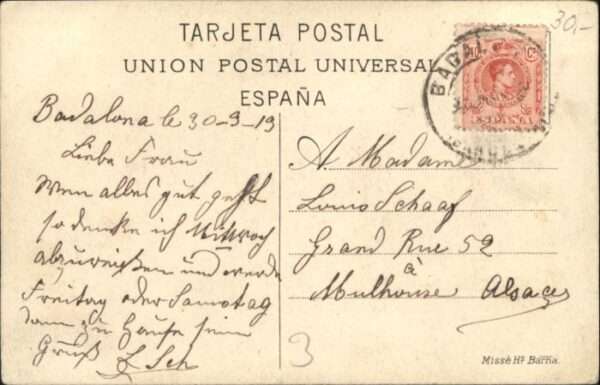 30,-
TARJETA POSTAL
UNION POSTAL UNIVERSAL
ESPAÑA
BADAL
ESPAÑA
Badalona le 30-9-19
Liebe Frau
Wen alles gut geht
so denke ich Mittwoch
abzureisen und werde
Freitag oder Samstag
dann zu Hause sein
Gruß
A Madame
Louis Schaaf
Grand Rue 52
à
Mulhouse Alsace
3
Missé Hs Barna.